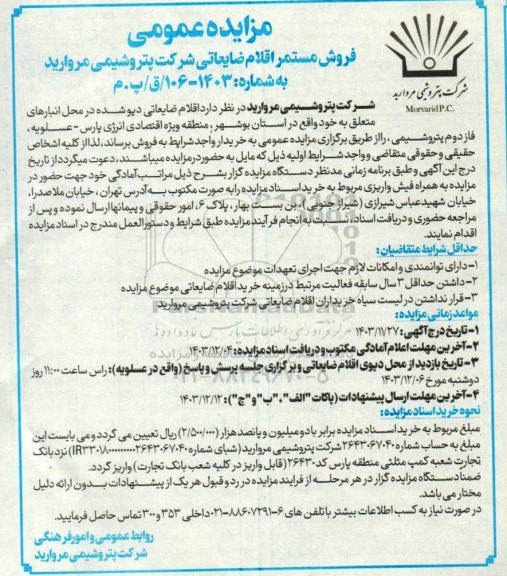 مزایده عمومی
فروش مستمر اقلام ضایعاتی شرکت پتروشیمی مروارید
به شماره: ۱۴۰۳-۱۰۶/ق/پ.م
شرکت پتروشیمی مروارید
Morvarid P.C.
شرکت پتروشیمی مروارید در نظر دارد اقلام ضایعاتی دپو شده در محل انبارهای
متعلق به خود واقع در استان بوشهر، منطقه ویژه اقتصادی انرژی پارس - عسلویه،
فاز دوم پتروشیمی، را از طریق برگزاری مزایده عمومی به خریدار واجد شرایط به فروش برساند، لذا از کلیه اشخاص
حقیقی و حقوقی متقاضی و واجد شرایط اولیه ذیل که مایل به حضور در مزایده میباشند، دعوت میگردد از تاریخ
درج این آگهی و طبق برنامه زمانی مدنظر دستگاه مزایده گزار بشرح ذیل مراتب آمادگی خود جهت حضور در
مزایده به همراه فیش واریزی مربوط به خرید اسناد مزایده را به صورت مکتوب به آدرس تهران، خیابان ملاصدرا،
خیابان شهید عباس شیرازی (شیراز جنوبی)، بن بست بهار، پلاک ۶، امور حقوقی و پیمانها ارسال نموده و پس از
مراجعه حضوری و دریافت اسناد، نسبت به انجام فرآیند مزایده طبق شرایط و دستورالعمل مندرج در اسناد مزایده
اقدام نمایند.
حداقل شرایط متقاضیان:
۱-دارای توانمندی و امکانات لازم جهت اجرای تعهدات موضوع مزایده
۲-داشتن حداقل ۳ سال سابقه فعالیت مرتبط در زمینه خرید اقلام ضایعاتی موضوع مزایده
۳-قرار نداشتن در لیست سیاه خریداران اقلام ضایعاتی شرکت پتروشیمی مروارید
مواعد زمانی مزایده:
۱-تاریخ درج آگهی: ۱۴۰۳/۱۱/۲۷
۲-آخرین مهلت اعلام آمادگی مکتوب و دریافت اسناد مزایده: ۱۴۰۳/۱۲/۰۴
۳-تاریخ بازدید از محل دپوی اقلام ضایعاتی و برگزاری جلسه پرسش و پاسخ (واقع در عسلویه): راس ساعت ۱۱:۰۰ روز
دوشنبه مورخ ۱۴۰۳/۱۲/۰۶
۴-آخرین مهلت ارسال پیشنهادات (پاکات "الف"، "ب" و "ج"): ۱۴۰۳/۱۲/۱۲
نحوه خرید اسناد مزایده:
مبلغ مربوط به خرید اسناد مزایده برابر با دو میلیون و پانصد هزار (۲/۵۰۰/۰۰۰) ریال تعیین می گردد و می بایست این
مبلغ به حساب شماره ۲۶۴۳۰۶۷۰۴۰ شرکت پتروشیمی مروارید (شبای شماره IR۳۳۰۱۸۰۰۰۰۰۰۰۰۰۰۲۶۴۳۰۶۷۰۴۰) نزد بانک
تجارت شعبه کمپ مثلثی منطقه پارس کد ۲۶۴۳۰ (قابل واریز در کلیه شعب بانک تجارت) واریز گردد.
ضمنا دستگاه مزایده گزار در هر مرحله از فرایند مزایده در رد و قبول هر یک از پیشنهادات بدون ارائه دلیل
مختار می باشد.
در صورت نیاز به کسب اطلاعات بیشتر با تلفن های ۶-۸۸۶۰۷۲۹۱-۰۲۱ داخلی ۳۵۳ و ۳۰۰ تماس حاصل فرمایید.
روابط عمومی و امور فرهنگی
شرکت پتروشیمی مروارید